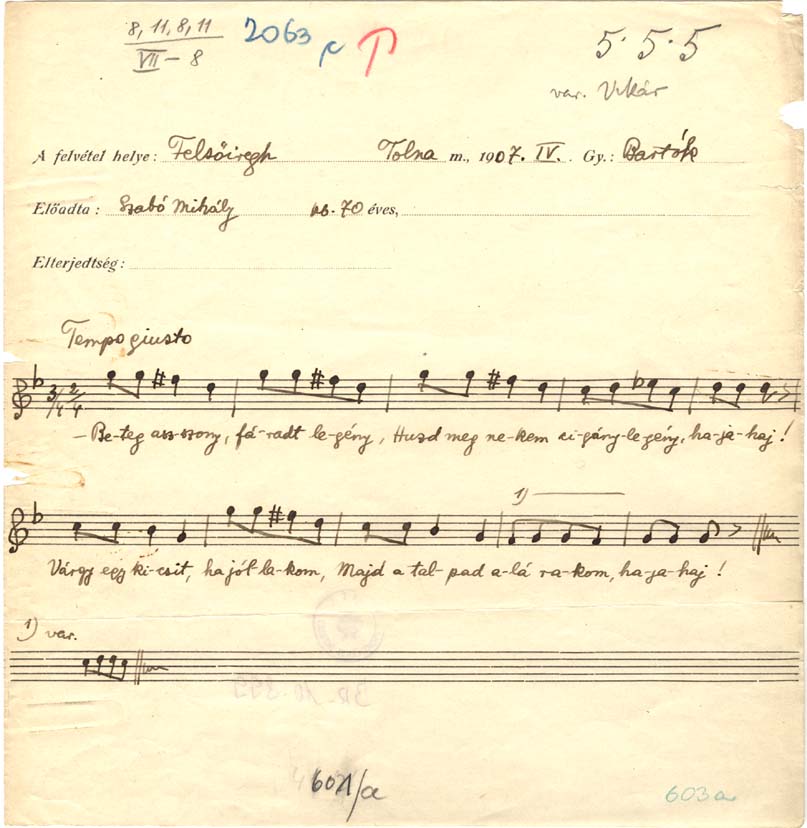 8, 11, 8, 11
VII - 8
2063
5. 5. 5
var. Vikár
A felvétel helye: Felsőiregh Tolna m., 1907. IV. Gy.: Bartók
Előadta: Szabó Mihály 70 éves,
Elterjedtség:
Tempo giusto
3/4 2/4
– Be-teg asz-szony, fá-radt le-gény, Huzd meg ne-kem ci-gány-le-gény, ha-ja-haj!
1)
Várgy egy ki-csit, ha jól la-kom, Majd a tal-pad a-lá ra-kom, ha-ja-haj!
1) var.
601/a
603a